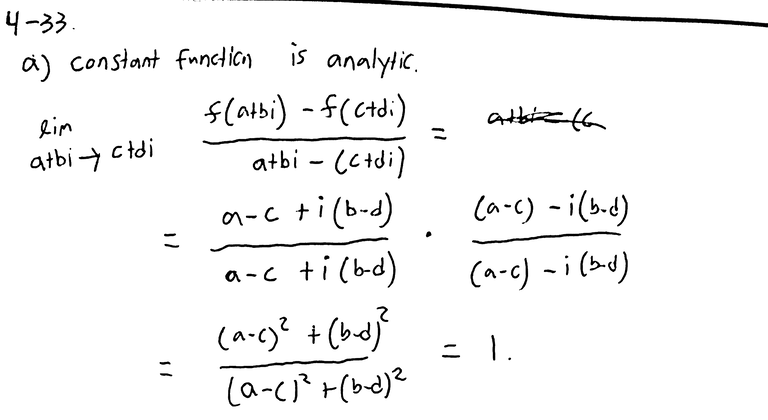 4-33.
a) constant function is analytic.
lim a+bi → c+di (f(a+bi) - f(c+di)) / (a+bi - (c+di)) =
= (a-c + i(b-d)) / (a-c + i(b-d)) · ((a-c) - i(b-d)) / ((a-c) - i(b-d))
= ((a-c)² + (b-d)²) / ((a-c)² + (b-d)²) = 1.